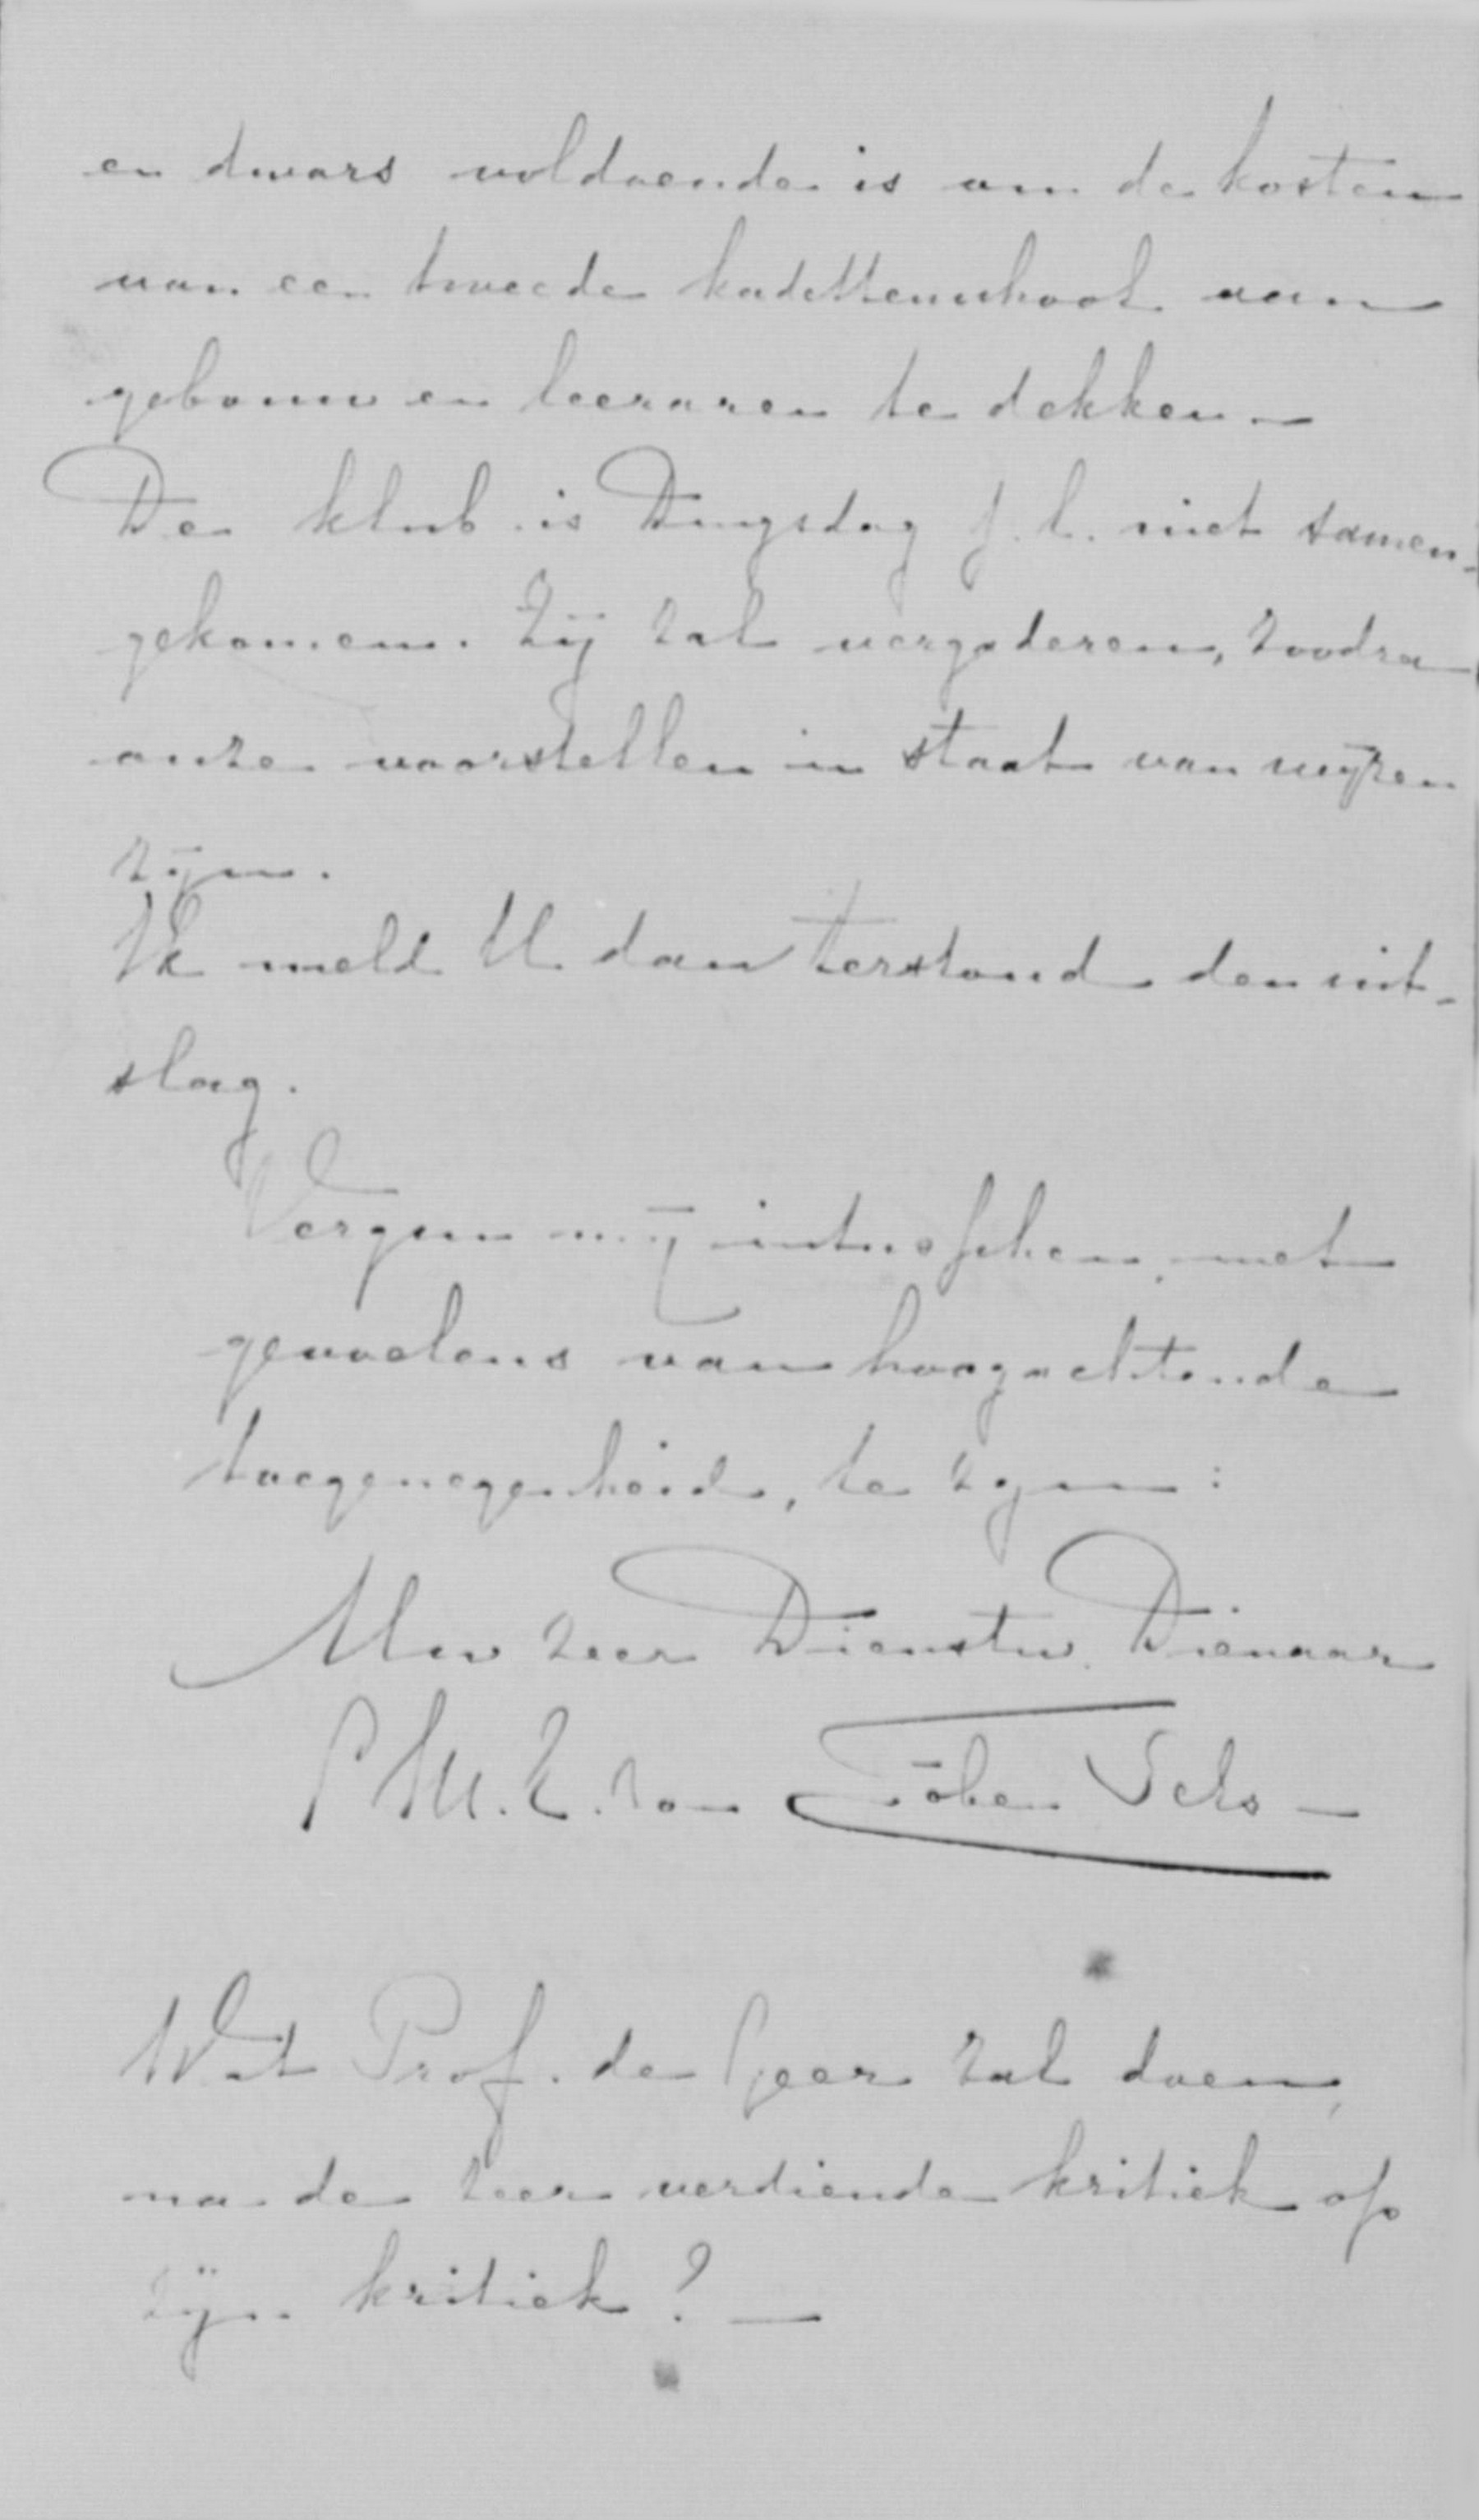 en dwars voldoende is om de kosten
van een tweede kadettenschool aan
gebouw en leeraren te dekken —
De klub is Dingsdag j.l. niet samen-
gekomen. Zij zal vergaderen, zoodra
onze voorstellen in staat van wijzen
zijn.
Ik meld U dan terstond den uit-
slag.
Vergun mij intusschen, met
gevoelens van hoogachtende
toegenegenheid, te zijn:
Uw zeer Dienstw. Dienaar
van
Wat Prof. de Geer zal doen,
na de zeer verdiende kritiek op
zijn kritiek? —